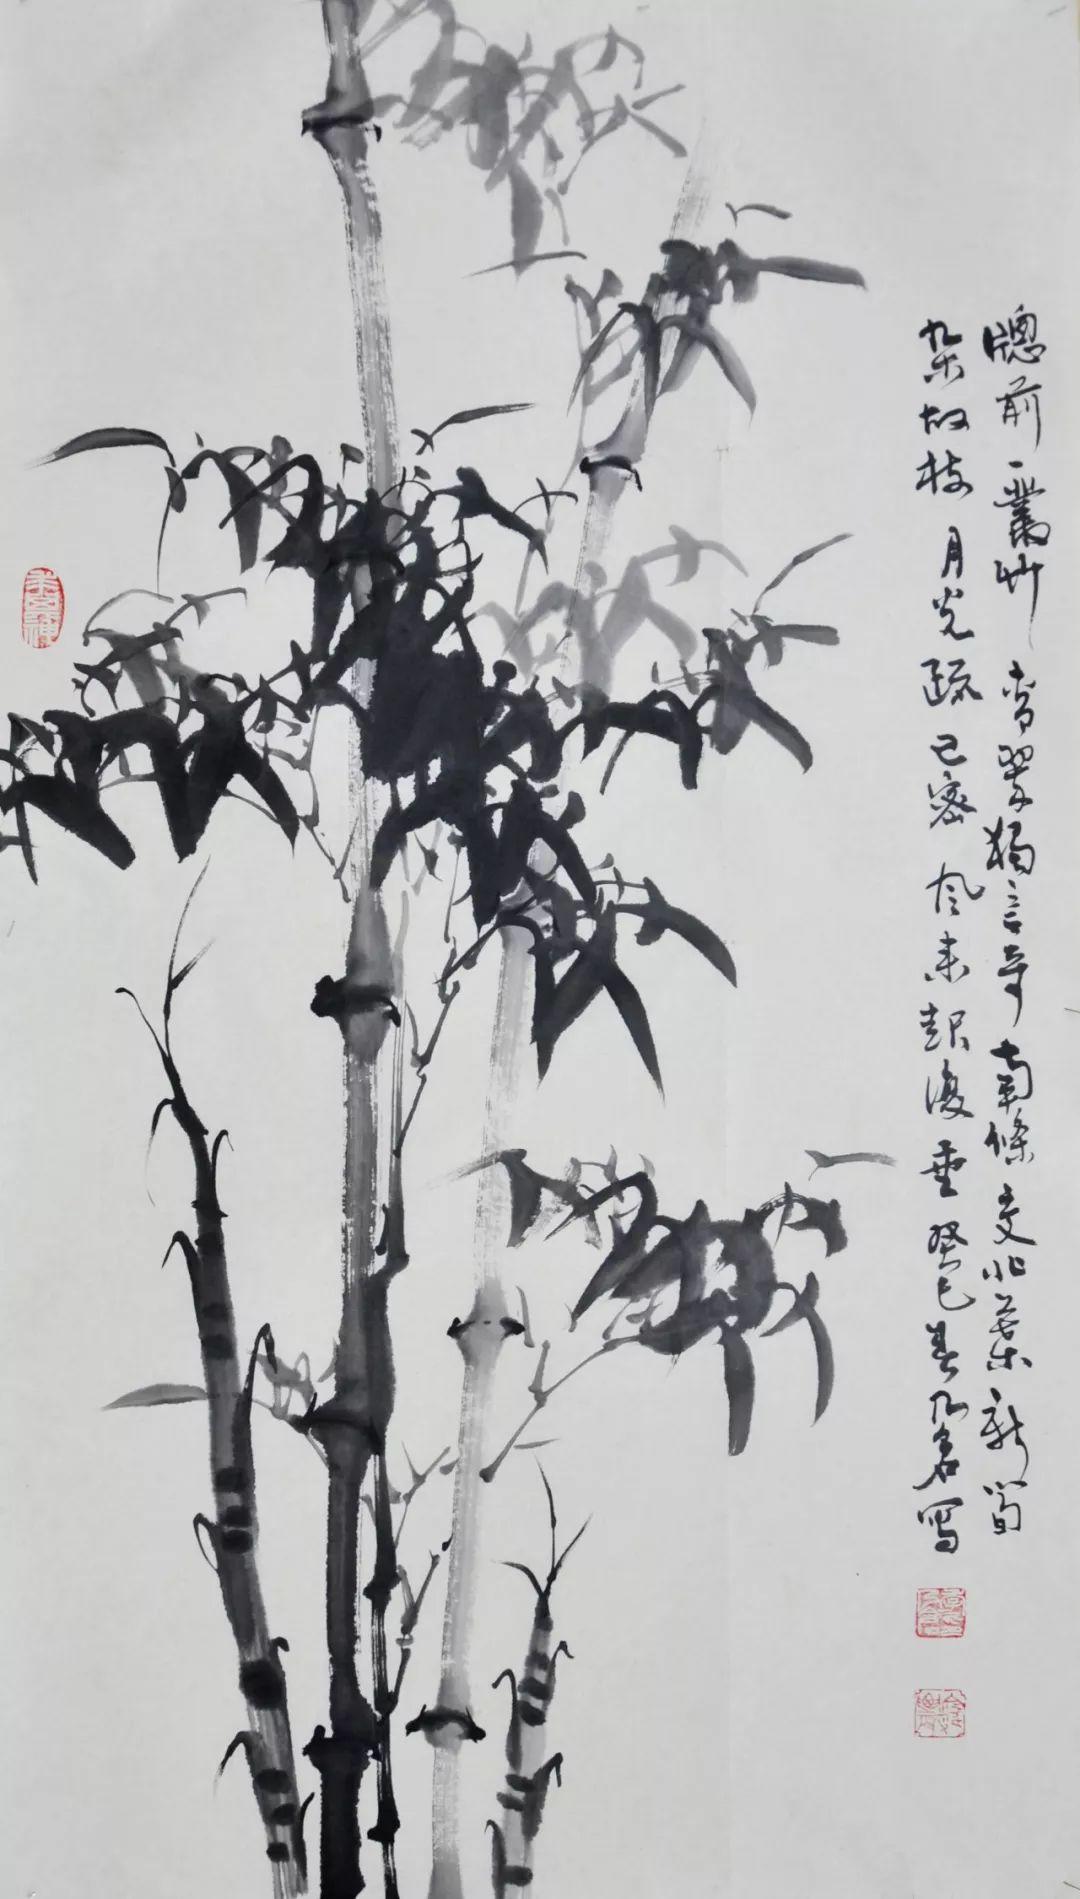 牕前一叢竹青翠獨言奇南條交北葉新筍
杂故枝月光疏已密风来起復垂癸巳春寫